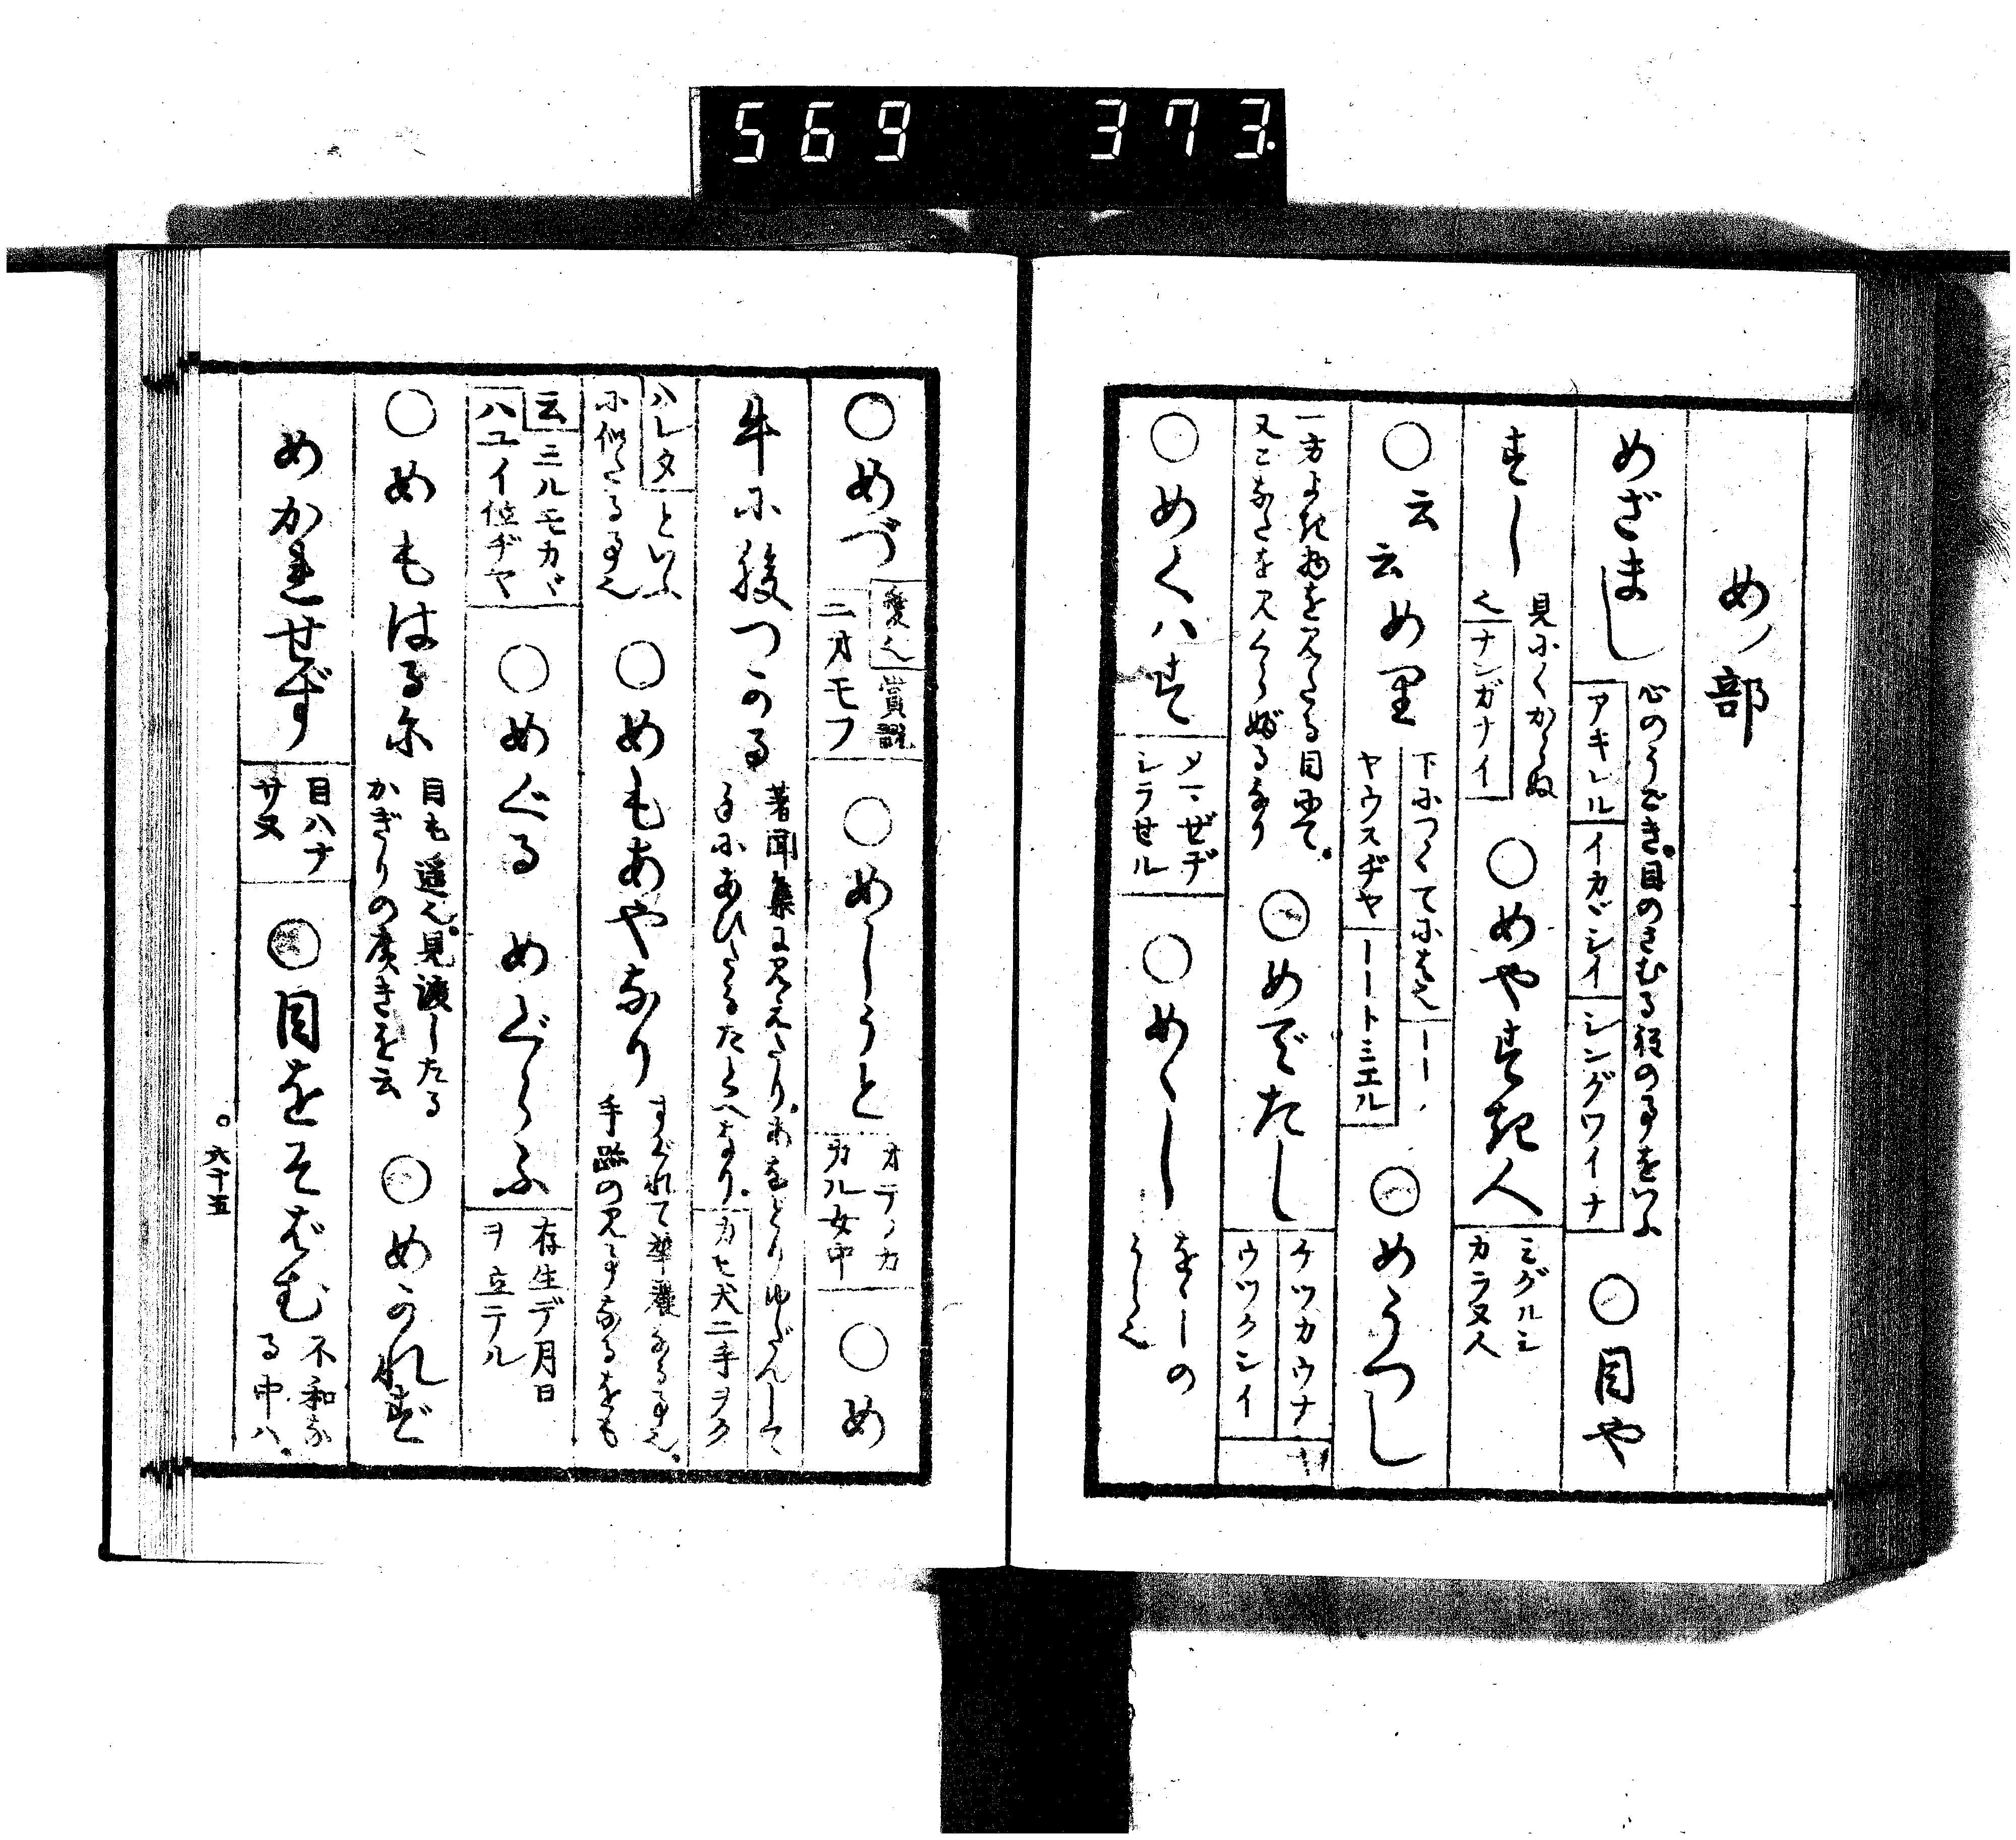 569 373.
めノ部
めざまし 心のうごき。目のさむる程の事をいふ アキレル イカヾシイ シングワイナ ○目や
すし 見にくからぬ也 ナンガナイ ○めやすき人 ミグルシカラヌ人
○云云めり 下につくてにをは也 ーーヤウスヂヤ ーートミエル ○めうつし
一方よき物を見たる目にて。又こなたを見くらぶるなり ○めでたし ケツカウナ ウツクシイ
○めくハす メマゼデシラセル ○めゝし をゝしのうら也
○めづ 愛也 賞翫ニオモフ ○めしうと オテカカル女中 ○め
牛に腹つかる 著聞集に見えたり。あをとりゆだんして事にあひたるたとへなり。カヒ犬ニ手ヲク
ハレタといふに似たる事也 ○めもあやなり すぐれて華麗なる事也。手跡の見事なるをも
云 ミルモカヾハユイ位ヂヤ ○めぐる めぐらふ 存生デ月日ヲ立テル
○めもはるに 目も遥也。見渡したるかぎりの広きを云 ○めかれず
めかれせず 目ハナサヌ ○目をそばむ 不和なる中ハ。
○六十五